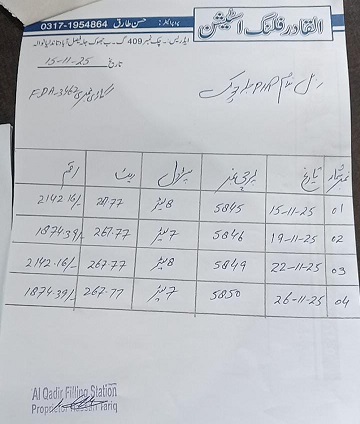 القادر فلنگ اسٹیشن
پروپرائیٹر: حسن طارق 0317-1954864
ایڈریس: چک نمبر 409 گ۔ب
تاریخ 15-11-25
گاڑی نمبری FDA-3462
نمبر شمار تاریخ پرچی نمبر پٹرول ریٹ رقم
01 15-11-25 5845 8 لیٹر 267.77 2142.16/-
02 19-11-25 5846 7 لیٹر 267.77 1874.39/-
03 22-11-25 5849 8 لیٹر 267.77 2142.16/-
04 26-11-25 5850 7 لیٹر 267.77 1874.39/-
Al Qadir Filling Station
Proprietor Hassan Tariq